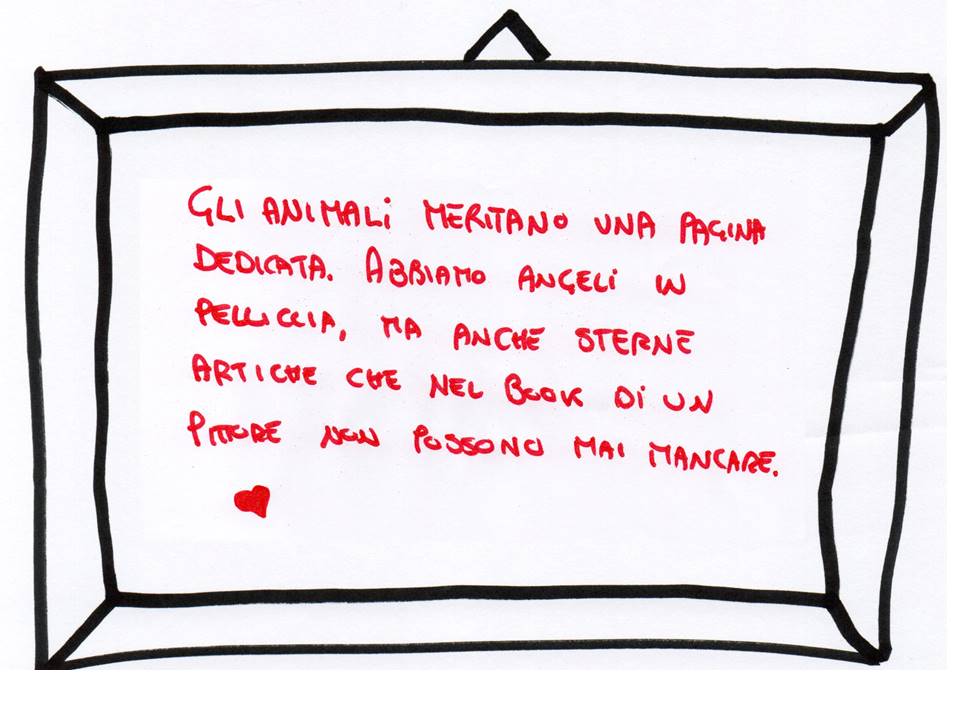 GLI ANIMALI MERITANO UNA PAGINA
DEDICATA. ABBIAMO ANGELI IN
PELLICCIA, MA ANCHE STERNE
ARTICHE CHE NEL BOOK DI UN
PITTORE NON POSSONO MAI MANCARE.